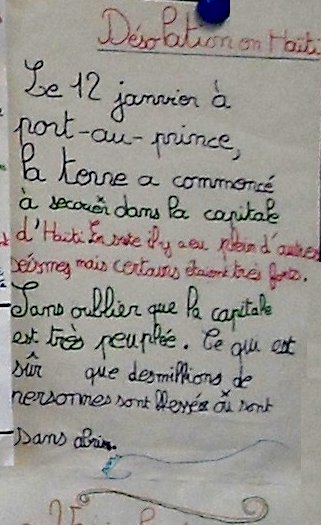 Désolation en Haïti
Le 12 janvier à
port-au-prince,
la terre a commencé
à secouér dans la capitale
d'Haiti En suite il y a eu plein d'autres
séismes mais certains étaient très forts.
Sans oublier que la capitale
est très peuplée. Ce qui est
sûr que des millions de
personnes sont blessés où sont
sans abris.